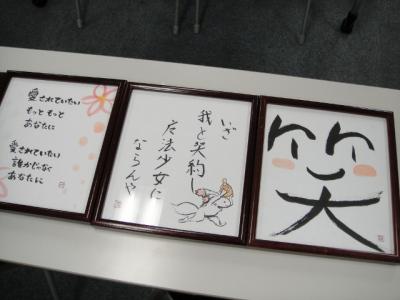 愛されていたい
もっと もっと
あなたに
愛されていたい
誰かじゃなく
あなたに
いざ
我と契約し
魔法少女に
ならんや
笑